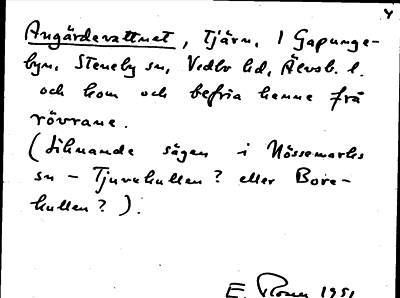 4
Angärdevattnet, Tjärn, I Gapunge-
byn. Steneby sn, Vedbo hd, Älvsb. l.
och kom och befria henne frå
rövrane.
(Liknande sägen i Nössemarks
sn - Tjuvekullen? eller Bore-
kullen?).
E. 1951